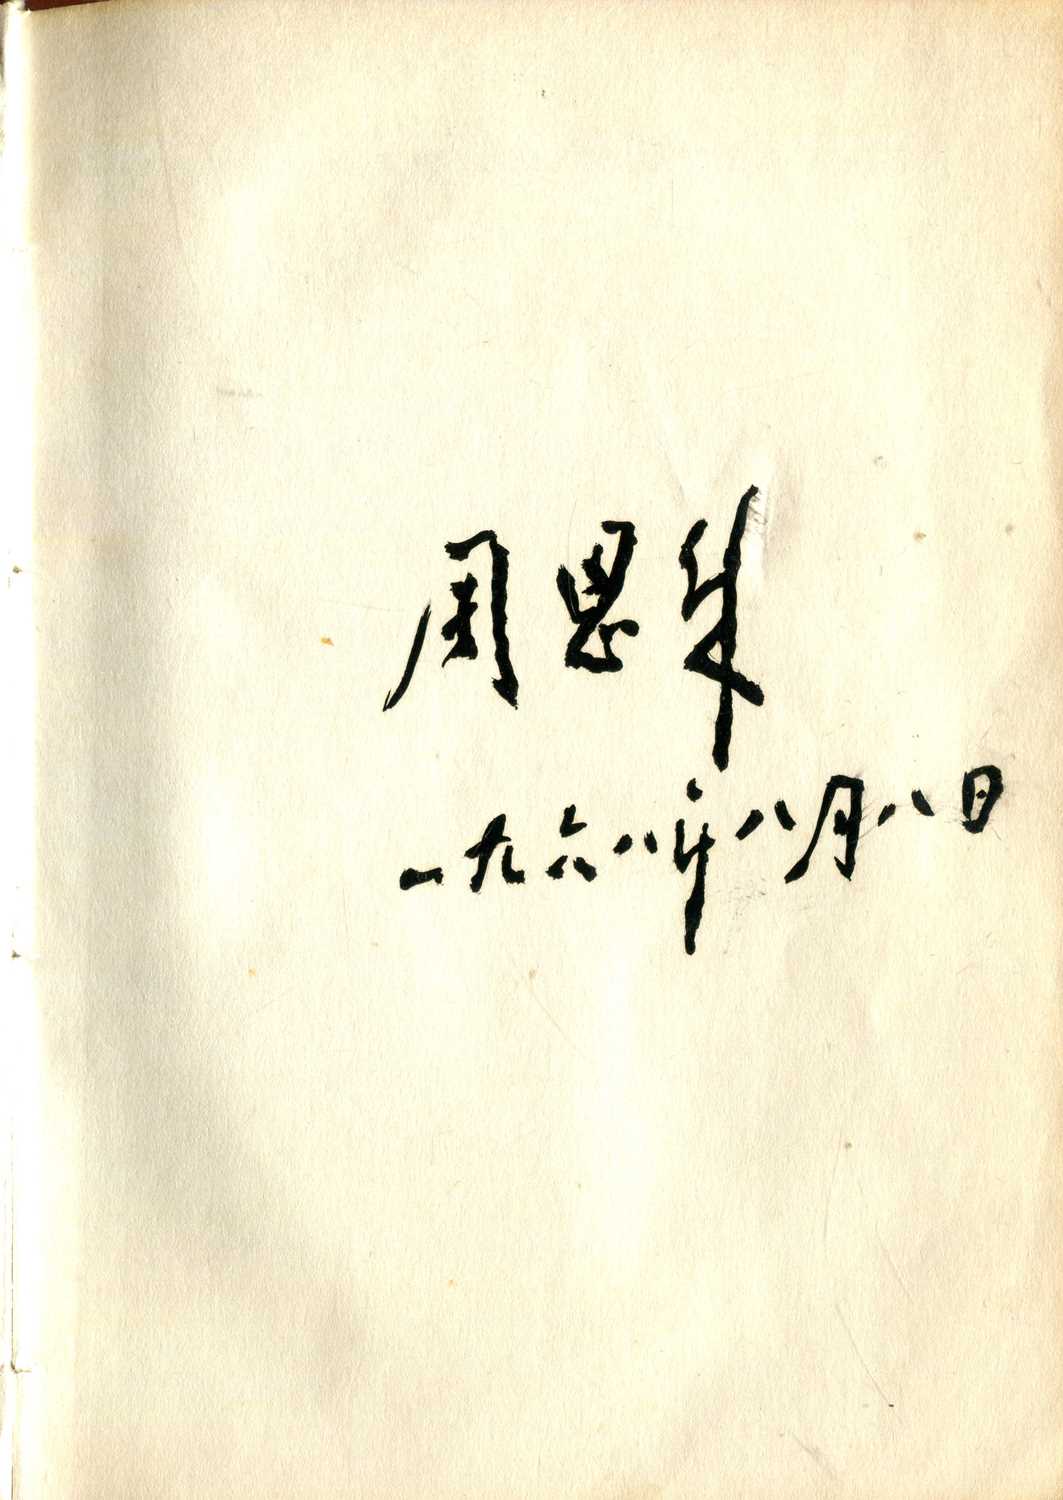 周恩来
一九六八年八月八日